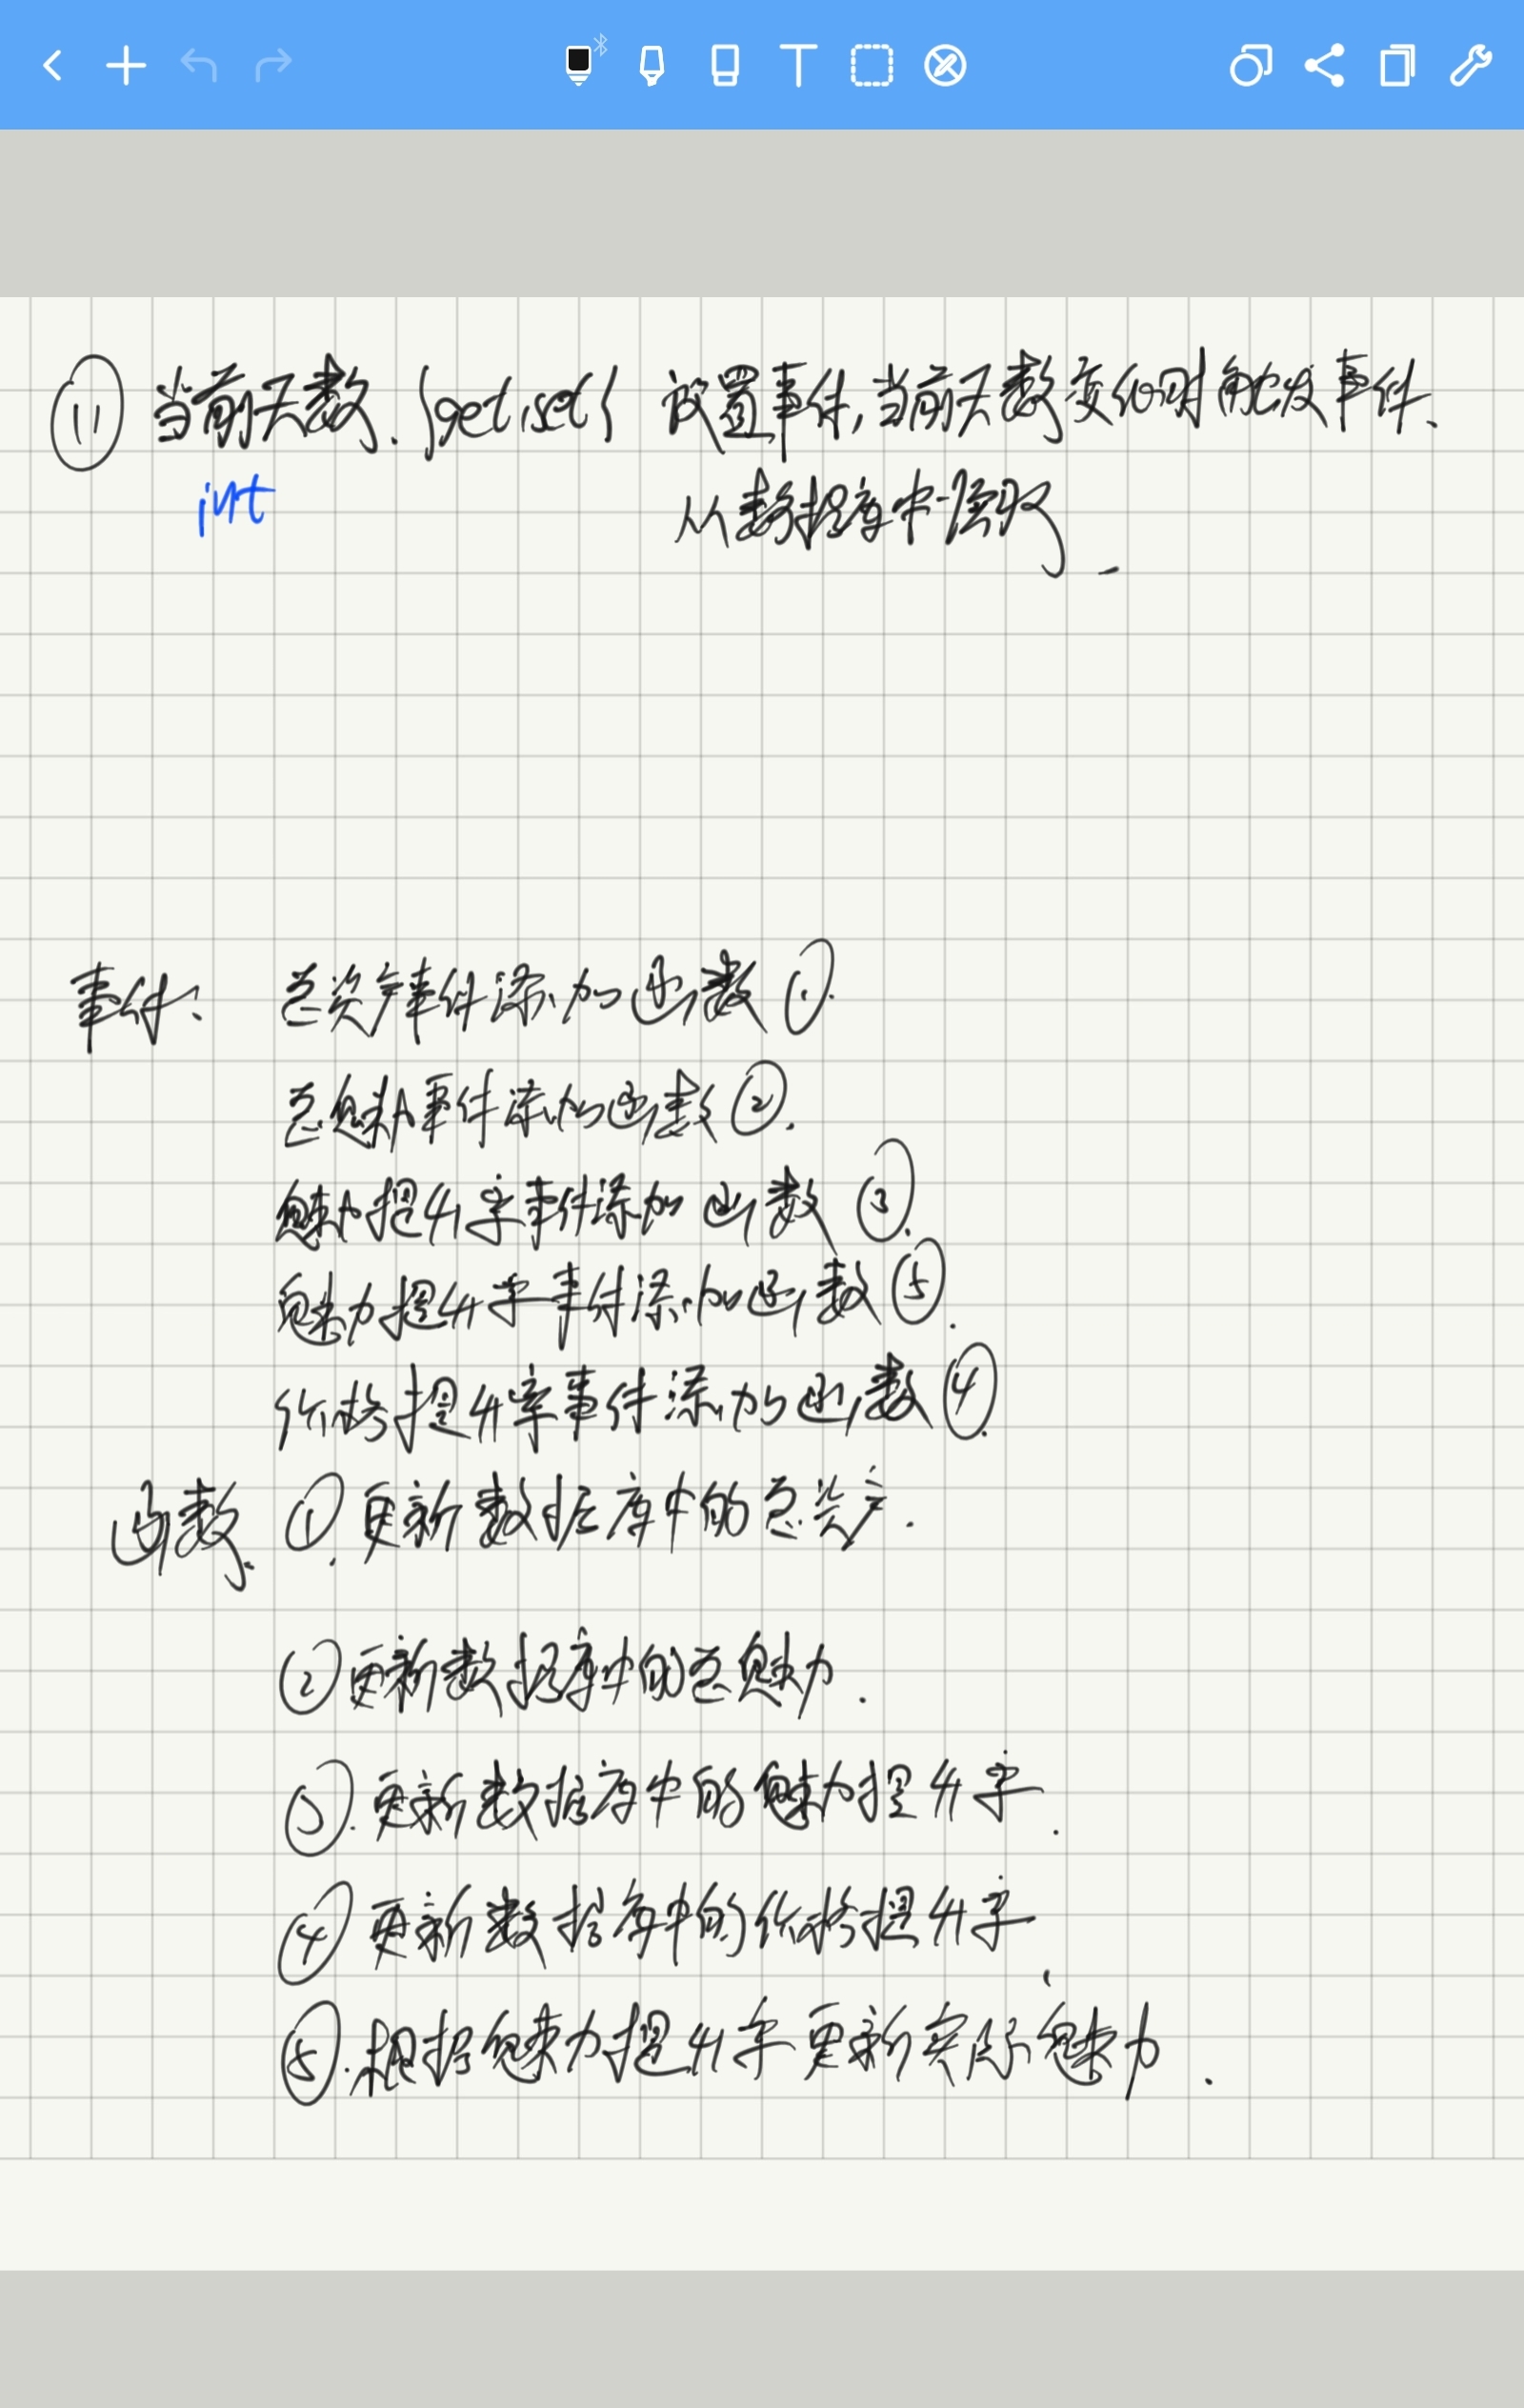 ⑪ 当前天数. {get;set} 放置事件,当前天数变化时触发事件.
int
从数据库中读取.
事件: 总资产事件添加函数①.
总魅力事件添加函数②.
魅力提升率事件添加函数③.
魅力提升率事件添加函数⑤.
价格提升率事件添加函数④.
函数. ①更新数据库中的总资产.
②更新数据库中的总魅力.
③.更新数据库中的魅力提升率.
④更新数据库中的价格提升率.
⑤.根据魅力提升率更新实际魅力.